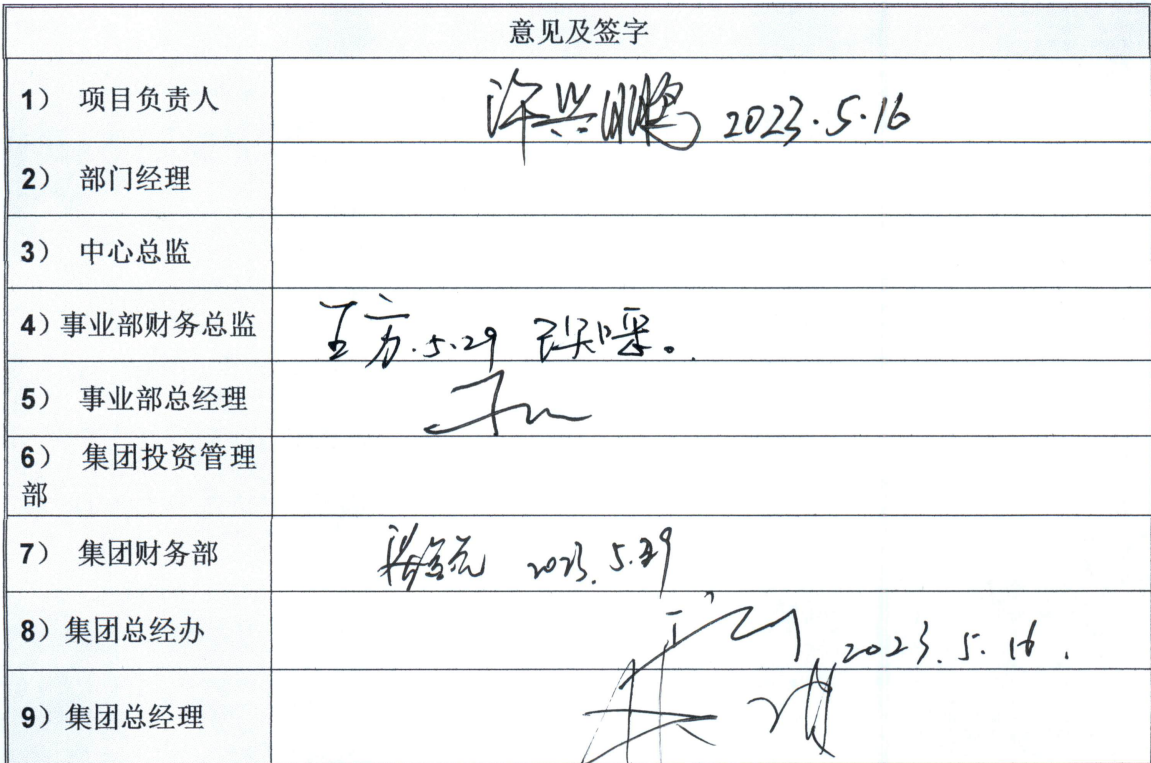 意见及签字
1） 项目负责人
许兴鹏 2023.5.16
2） 部门经理
3） 中心总监
4）事业部财务总监
王方.5.29
5） 事业部总经理
6） 集团投资管理
部
7） 集团财务部
2023.5.29
8）集团总经办
2023.5.16.
9）集团总经理